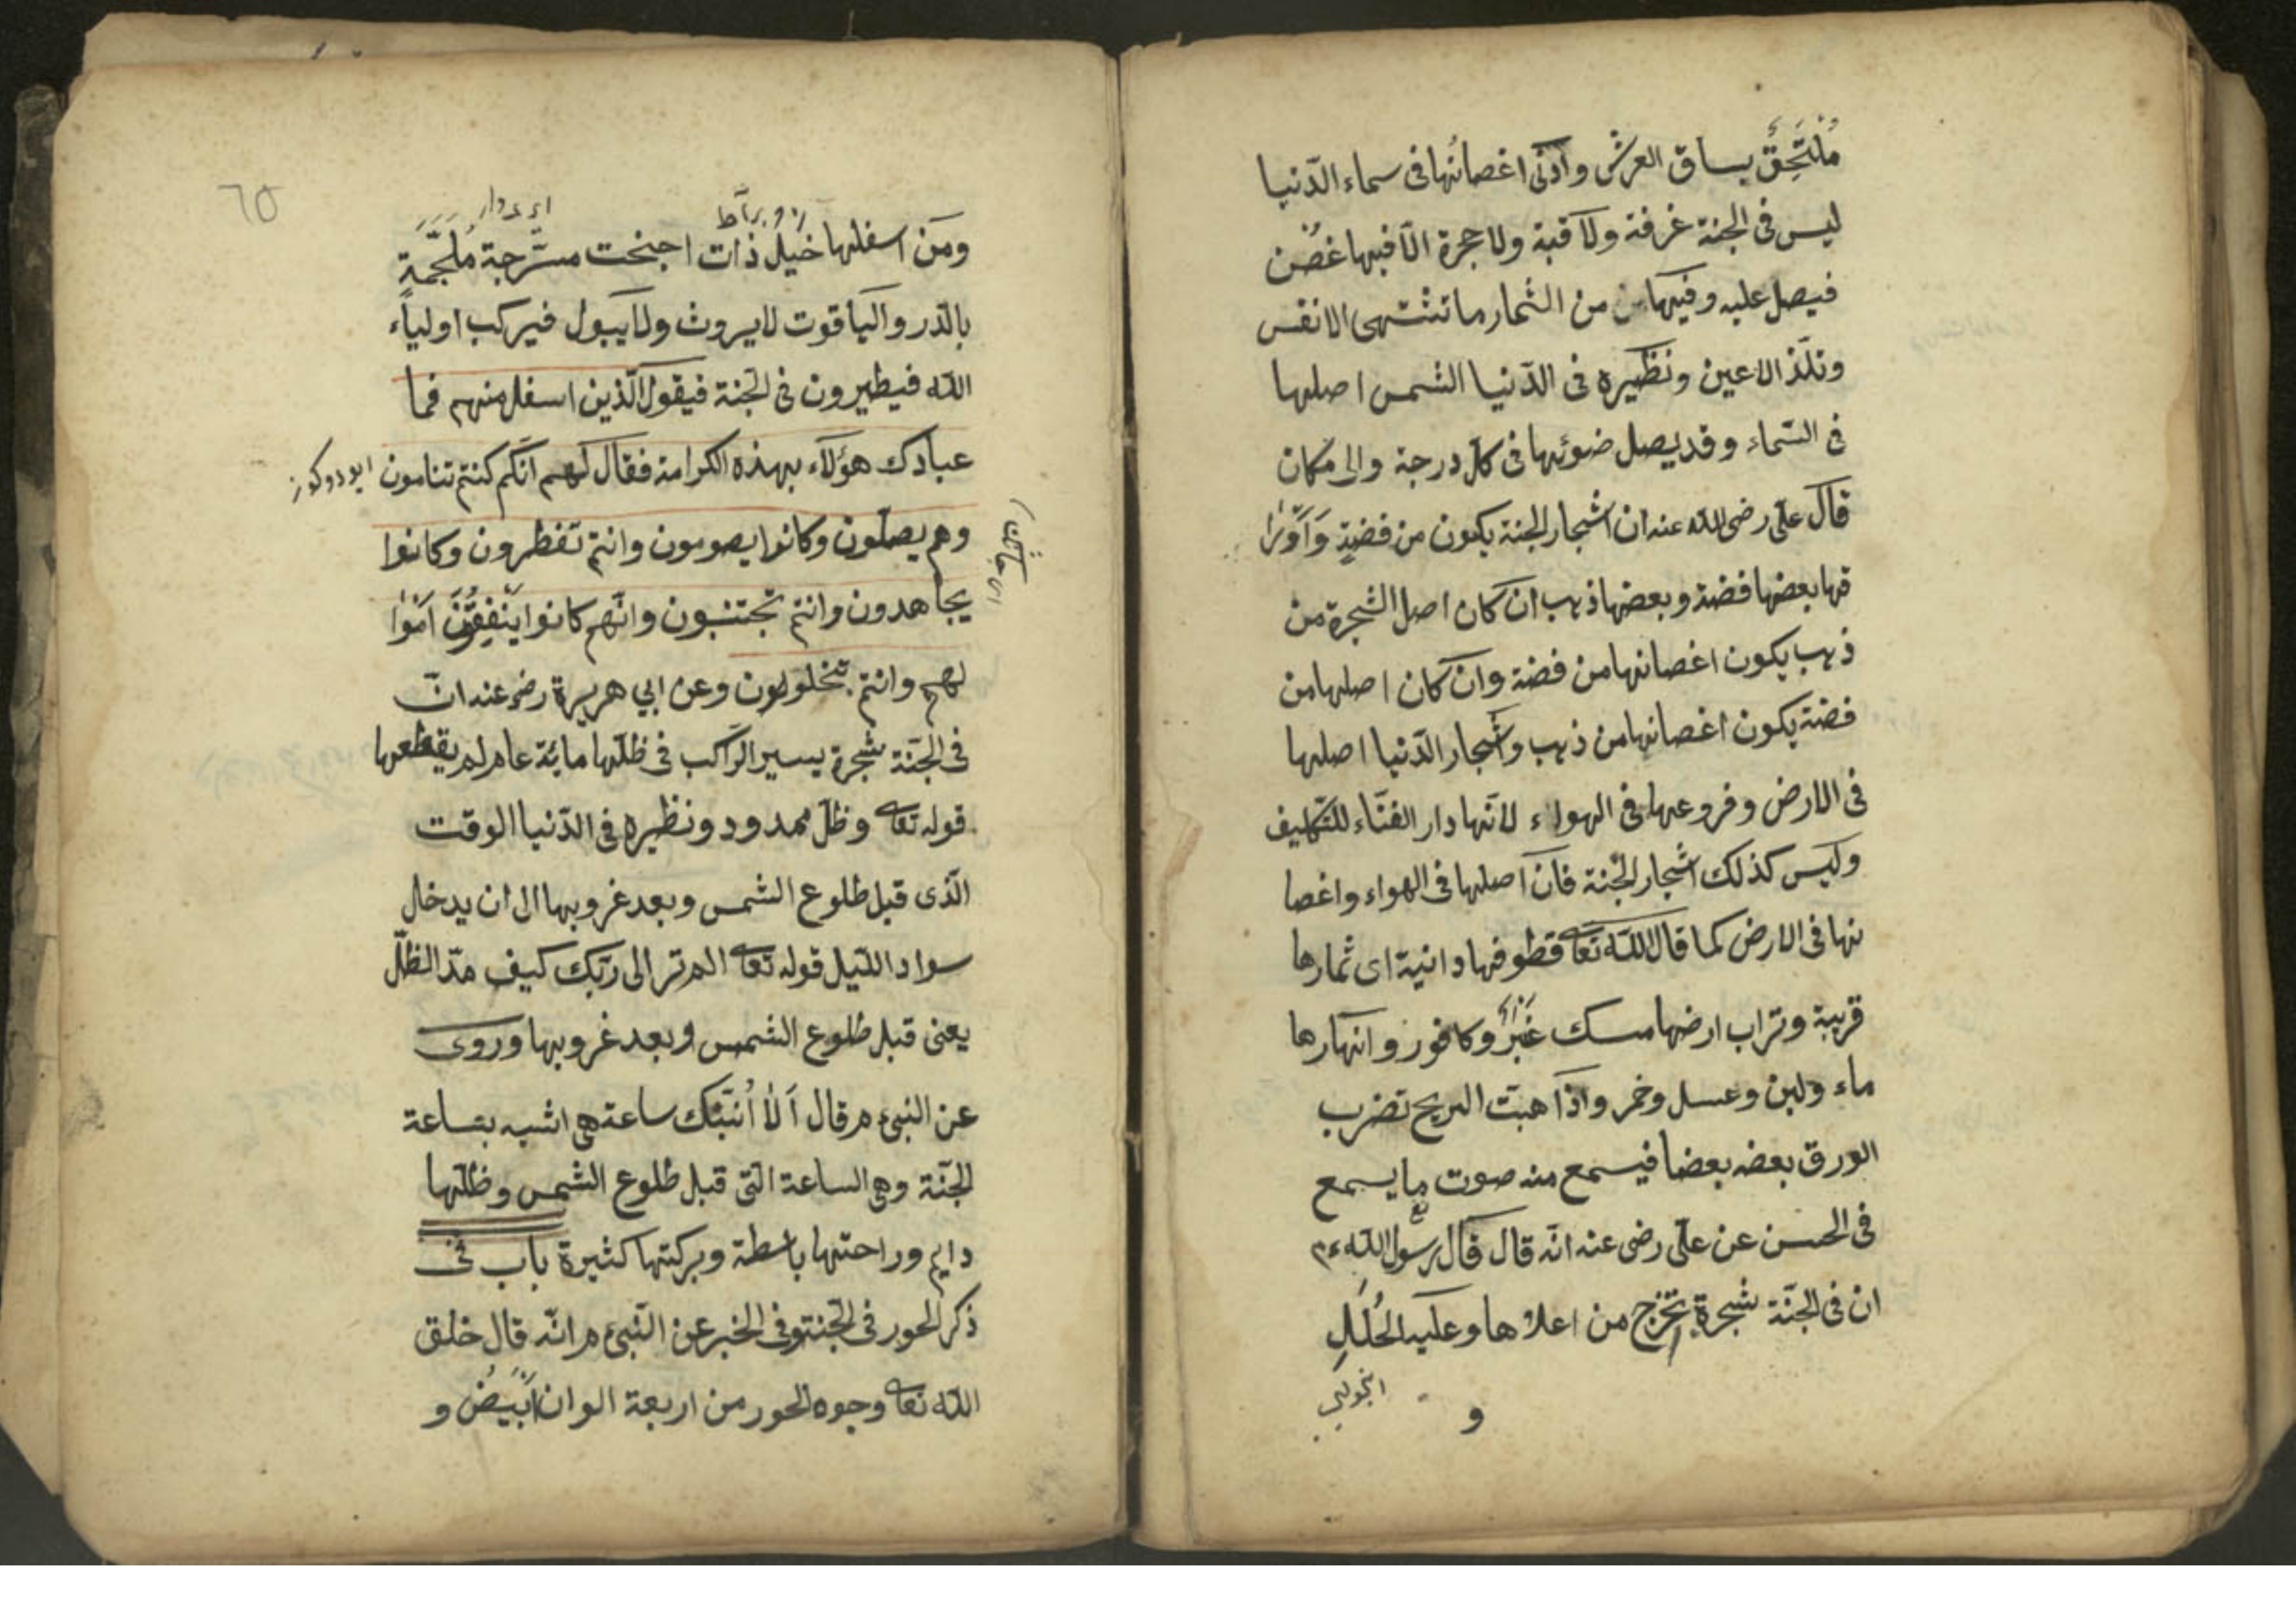 مُلتَحِقٌ بساق العرش وادنى اغصانُها فى سماء الدّنيا
ليس فى الجنة غرفة ولا قبة ولا حجرة الّا فيها غصن
فيصل عليه وفيها من الثمار ما تشتهى الانفس
وتلذّ الاعين ونظيره فى الدّنيا الشمس اصلها
فى السّماء وقد يصل ضوئها فى كلّ درجة والى مكان
قال علىّ رضى الله عنه ان اشجار الجنة يكون من فضةٍ وَاَوْرَا
قها بعضها فضة وبعضها ذهب ان كان اصل الشجرة من
ذهب يكون اغصانها من فضة وان كان اصلها من
فضة يكون اغصانها من ذهب واشجار الدّنيا اصلها
فى الارض وفروعها فى الهواء لانّها دار الفنّاء للتّكليف
وليس كذلك اشجار الجنة فانّ اصلها فى الهواء واغصا
نها فى الارض كما قال الله تعا قطوفها دانية اى ثمارها
قريبة وتراب ارضها مسك عنبر وكافور وانهارها
ماء ولبن وعسل وخمر واذا هبّت الريح تضرب
الورق بعضه بعضا فيسمع منه صوت ما يسمع
فى الحسن عن علىّ رضى عنه انّه قال قال رسول الله ءم
ان فى الجنّة شجرة تخرج من اعلاها وعليه الحُلَلِ
و
٦٥
ومن اسفلها خيلٌ ذات اجنحت مسرّجة مُلَجَّمَةٍ
بالدّر والياقوت لا يروث ولا يبول فيركب اولياء
الله فيطيرون فى الجنة فيقول الّذين اسفل منهم فما
عبادك هؤلاء بهذه الكرامة فقال لهم انّكم كنتم تنامون
وهم يصلّون وكانوا يصومون وانتم تفطرون وكانوا
يجاهدون وانتم تجتنبون وانّهم كانوا ينفقون اموا
لهم وانتم تبخلون وعن ابي هريرة رضى عنه انّ
فى الجنّة شجرة يسير الرّاكب فى ظلّها ماية عام لم يقطعها
قوله تعا وظلّ ممدود ونظيره فى الدّنيا الوقت
الّذى قبل طلوع الشمس وبعد غروبها الى ان يدخل
سواد الليل قوله تعا الم تر الى ربّك كيف مدّ الظلّ
يعنى قبل طلوع الشمس وبعد غروبها وروى
عن النبىّ ءم قال اَلا اُنبّئك ساعة هى اشبه بساعة
الجنّة وهى الساعة التى قبل طلوع الشمس وظلّها
دايم وراحتها باسطة وبركتها كثيرة باب فى
ذكر الحور فى الجنة وفى الخبر عن النّبىّ ءم انّه قال خلق
الله تعا وجوه الحور من اربعة الوان ابيض و